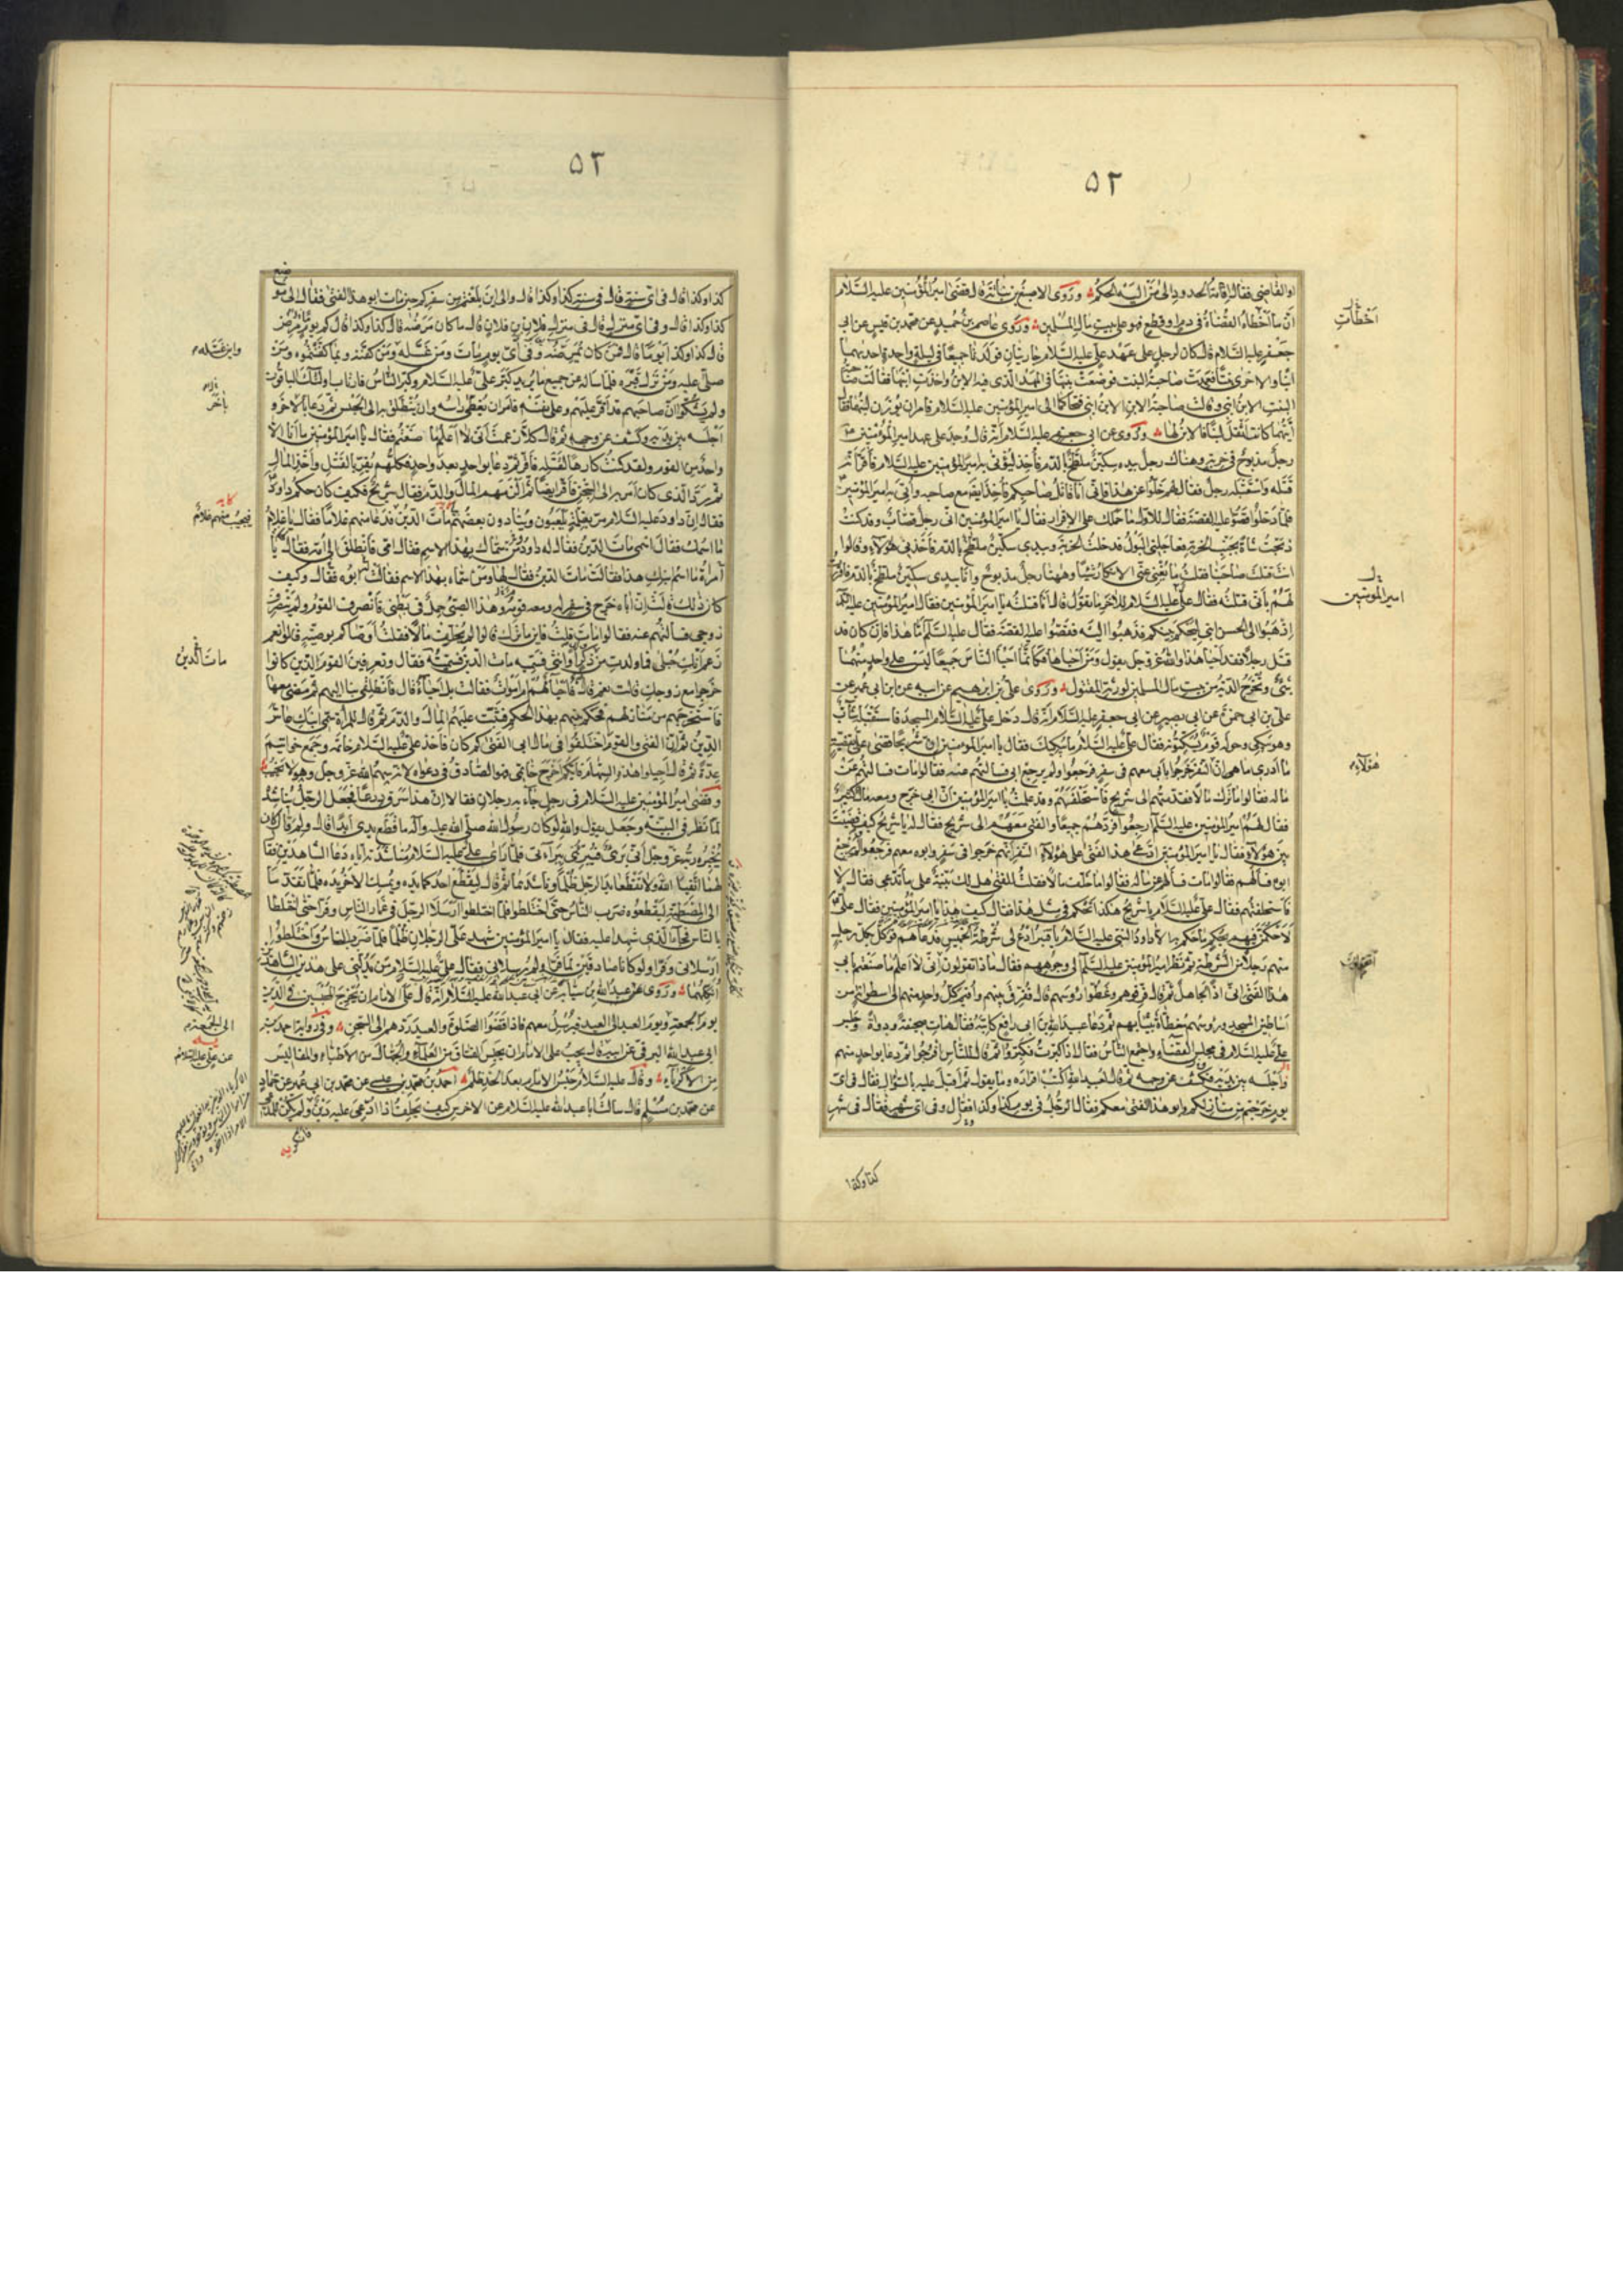 ٥٢
او القاضي فقال اقامة الحدود الى من اليه الحكم وروى الاصبغ بن نباته انه قال قضى امير المؤمنين عليه السلام
ان ما اخطأت القضاة في دم او قطع فهو على بيت مال المسلمين وروى عاصم بن حميد عن محمد بن قيس عن ابي
جعفر عليه السلام قال كان لرجل على عهد علي عليه السلام جاريتان فولدتا جميعا في ليلة واحدة احديهما
ابنا والاخرى بنتا فعمدت صاحبة البنت فوضعت بنتها في المهد الذي فيه الابن واخذت ابنها فقالت صاحبة
البنت الابن ابني وقالت صاحبة الابن الابن ابني فتحاكما الى امير المؤمنين عليه السلام فامر ان يوزن لبنهما وقال
ايتهما كانت اثقل لبنا فالابن لها وروى عن ابي جعفر عليه السلام انه قال وجد على عهد امير المؤمنين
رجل مذبوح في خربة وهناك رجل بيده سكين ملطخ بالدم فاخذ ليؤتى به امير المؤمنين عليه السلام فاقر انه
قتله واستقبله رجل فقال لهم خلوا عن هذا فاني انا قاتل صاحبكم فاخذ ايضا مع صاحبه واتي به امير المؤمنين
فلما دخلوا قصوا عليه القصة فقال للاول ما حملك على الاقرار فقال يا امير المؤمنين اني رجل قصاب وقد كنت
ذبحت شاة بجنب الخربة فاعجلني البول فدخلت الخربة وبيدي سكين ملطخ بالدم فاخذني هؤلاء وقالوا
انت قتلت صاحبنا فقلت ما يغني عني الانكار شيئا وههنا رجل مذبوح وانا بيدي سكين ملطخ بالدم فاقررت
لهم باني قتلته فقال علي عليه السلام للاخر ما تقول قال انا قتلته يا امير المؤمنين فقال امير المؤمنين عليه السلام
اذهبوا الى الحسن ابني ليحكم بينكم فذهبوا اليه فقصوا عليه القصة فقال عليه السلام اما هذا فان كان قد
قتل رجلا فقد احيا هذا والله عز وجل يقول ومن احياها فكانما احيا الناس جميعا ليس على واحد منهما
شيء وتخرج الدية من بيت مال المسلمين لورثة المقتول وروى علي بن ابراهيم عن ابيه عن ابن ابي عمير عن
علي بن ابي حمزة عن ابي بصير عن ابي جعفر عليه السلام انه قال دخل علي عليه السلام المسجد فاستقبله شاب
وهو يبكي وحوله قوم يسكتونه فقال علي عليه السلام ما يبكيك فقال يا امير المؤمنين ان شريحا قضى علي بقضية
ما ادري ما هي ان النفر خرجوا بابي معهم في سفر فرجعوا ولم يرجع ابي فسالتهم عنه فقالوا مات فسالتهم عن
ماله فقالوا ما ترك مالا فقدمتهم الى شريح فاستحلفهم وقد علمت يا امير المؤمنين ان ابي خرج ومعه مال كثير
فقال لهم امير المؤمنين عليه السلام ارجعوا فردهم جميعا والفتى معهم الى شريح فقال له يا شريح كيف قضيت
بين هؤلاء فقال يا امير المؤمنين ادعى هذا الفتى على هؤلاء النفر انهم خرجوا في سفر وابوه معهم فرجعوا ولم يرجع
ابوه فسالتهم فقالوا مات فسالتهم عن ماله فقالوا ما خلف مالا فقلت للفتى هل لك بينة على ما تدعي فقال لا
فاستحلفتهم فقال علي عليه السلام يا شريح هكذا تحكم في مثل هذا فقال كيف هذا يا امير المؤمنين فقال علي
لاحكمن فيهم بحكم ما حكم به الا داود النبي عليه السلام يا قنبر ادع لي شرطة الخميس فدعاهم فوكل بكل رجل
منهم رجلا من الشرطة ثم نظر امير المؤمنين عليه السلام الى وجوههم فقال ما ذا تقولون اني لا اعلم ما صنعتم بابي
هذا الفتى اني اذا لجاهل ثم قال فرقوهم وغطوا رؤسهم قال ففرق بينهم واقيم كل واحد منهم الى اسطوانة من
اساطين المسجد ورؤسهم مغطاة بثيابهم ثم دعا عبيد الله بن ابي رافع كاتبه فقال هات صحيفة ودواة وجلس
علي عليه السلام في مجلس القضاء واجتمع الناس فقال اذا كبرت فكبروا ثم قال للناس افرجوا ثم دعا بواحد منهم
فاجلسه بين يديه فكشف عن وجهه ثم قال لعبيد الله اكتب اقراره وما يقول ثم اقبل عليه بالسؤال فقال في اي
يوم خرجتم من منازلكم وابو هذا الفتى معكم فقال الرجل في يوم كذا وكذا فقال وفي اي شهر فقال في شهر
كذا وكذا
اخطأت
امير المؤمنين
هؤلاء
٥٣
كذا وكذا قال في اي سنة قال في سنة كذا وكذا قال والى اين بلغتم من سفركم حين مات ابو هذا الفتى فقال الى موضع
كذا وكذا قال وفي اي منزل قال في منزل فلان بن فلان قال ما كان مرضه قال كذا وكذا قال كم يوما مرض
قال كذا وكذا يوما قال فمن كان يمرضه وفي اي يوم مات ومن غسله ومن كفنه وبما كفنتموه ومن
صلى عليه ومن نزل قبره فلما ساله عن جميع ما يريد كبر علي عليه السلام وكبر الناس فارتاب اولئك الباقون
ولم يشكوا ان صاحبهم قد اقر عليهم وعلى نفسه فامر ان يغطى راسه وان ينطلق به الى الحبس ثم دعا بالاخر
اجلسه بين يديه وكشف عن وجهه ثم قال كلا زعمت اني لا اعلم ما صنعتم فقال يا امير المؤمنين ما انا الا
واحد من القوم ولقد كنت كارها لقتله فاقر ثم دعا بواحد بعد واحد فكلهم يقر بالقتل واخذ المال
ثم رد الذي كان امر به الى السجن فاقر ايضا فالزمهم المال والدم فقال شريح فكيف كان حكم داود
فقال ان داود عليه السلام مر بغلمة يلعبون وينادون بعضهم مات الدين فدعا منهم غلاما فقال يا غلام
ما اسمك فقال اسمي مات الدين فقال له داود من سماك بهذا الاسم فقال امي فانطلق الى امه فقال يا
امراة ما اسم ابنك هذا فقالت مات الدين فقال لها ومن سماه بهذا الاسم فقالت ابوه فقال وكيف
كان ذلك قالت ان اباه خرج في سفر له ومعه قوم وهذا الصبي حمل في بطني فانصرف القوم ولم ينصرف
زوجي فسالتهم عنه فقالوا مات قلت فاين ما ترك قالوا لم يخلف مالا فقلت اوصاكم بوصية قالوا نعم
زعم انك حبلى فما ولدت من ذكر او انثى فسميه مات الدين فسميته فقال وتعرفين القوم الذين كانوا
خرجوا مع زوجك قالت نعم قال فاحياء هم ام اموات فقالت بل احياء قال فانطلقي بنا اليهم ثم مضى معها
فاستخرجهم من منازلهم فحكم بينهم بهذا الحكم فثبت عليهم المال والدم ثم قال للمراة سمي ابنك عاش
الدين ثم ان الفتى والقوم اختلفوا في مال ابي الفتى كم كان فاخذ علي عليه السلام خاتمه وجمع خواتيم
عدة ثم قال اجيلوا هذه السهام فايكم اخرج خاتمي فهو الصادق في دعواه لانه سهم الله عز وجل وهو لا يخيب
وقضى امير المؤمنين عليه السلام في رجل جاء به رجلان فقالا ان هذا سرق درعا فجعل الرجل يناشده
لما نظر في البينة وجعل يقول والله لو كان رسول الله صلى الله عليه وآله ما قطع يدي ابدا قال ولم قال كان
يخبره ربه عز وجل اني بريء فيبرئني ببراءتي فلما راى علي عليه السلام مناشدته اياه دعا الشاهدين فقال
لهما اتقيا الله ولا تقطعا يد الرجل ظلما وناشدهما ثم قال ليقطع احدكما يده ويمسك الاخر يده فلما تقدما
الى المصطبة ليقطعوه ضرب الناس حتى اختلطوا فلما اختلطوا ارسلا الرجل في غمار الناس وفرا حتى اختلطا
بالناس فجاء الذي شهدا عليه فقال يا امير المؤمنين شهد علي الرجلان ظلما فلما ضرب الناس واختلطوا
ارسلاني وفرا ولو كانا صادقين لما فرا ولم يرسلاني فقال علي عليه السلام من يدلني على هذين الشاهدين
انكلهما وروى عن عبد الله بن سيابة عن ابي عبد الله عليه السلام انه قال على الامام ان يخرج المحبسين في الدين
يوم الجمعة ويوم العيد الى العيد فيرسل معهم فاذا قضوا الصلوة والعيد ردهم الى السجن وفي رواية احمد بن
ابي عبد الله البرقي عن ابيه قال يجب على الامام ان يحبس الفساق من العلماء والجهال من الاطباء والمفاليس
من الاكرياء وقال عليه السلام حبس الامام بعد الحد ظلم احمد بن محمد بن عيسى عن محمد بن ابي عمير عن حماد
عن محمد بن مسلم قال سالت ابا عبد الله عليه السلام عن الاخرس كيف يحلف اذا ادعي عليه دين ولم يكن للمدعي
واين غسله
بآخر
غلام
مات الدين
الى الجمعة
عن علي عليه السلام